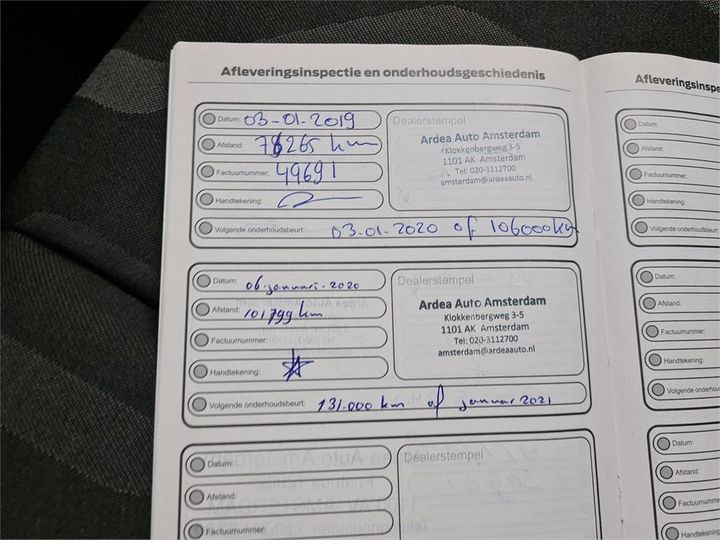 Afleveringsinspectie en onderhoudsgeschiedenis
Datum: 03-01-2019
Afstand: 76265 km
Factuurnummer: 49691
Handtekening:
Volgende onderhoudsbeurt: 03-01-2020 of 106000km
Dealerstempel
Ardea Auto Amsterdam
Klokkenbergweg 3-5
1101 AK Amsterdam
Tel: 020-3112700
amsterdam@ardeaauto.nl
Datum: 06-januari-2020
Afstand: 101799 km
Factuurnummer:
Handtekening:
Volgende onderhoudsbeurt: 131.000 km of januar 2021
Dealerstempel
Ardea Auto Amsterdam
Klokkenbergweg 3-5
1101 AK Amsterdam
Tel: 020-3112700
amsterdam@ardeaauto.nl
Datum:
Afstand:
Factuurnummer:
Dealerstempel
Afleveringsinspe
Datum:
Afstand:
Factuurnummer:
Handtekening:
Volgende onderhoudsbeurt
Datum:
Afstand:
Factuurnummer:
Handtekening:
Volgende onderhoudsbe
Datum:
Afstand:
Factuurnumm
Handtekening